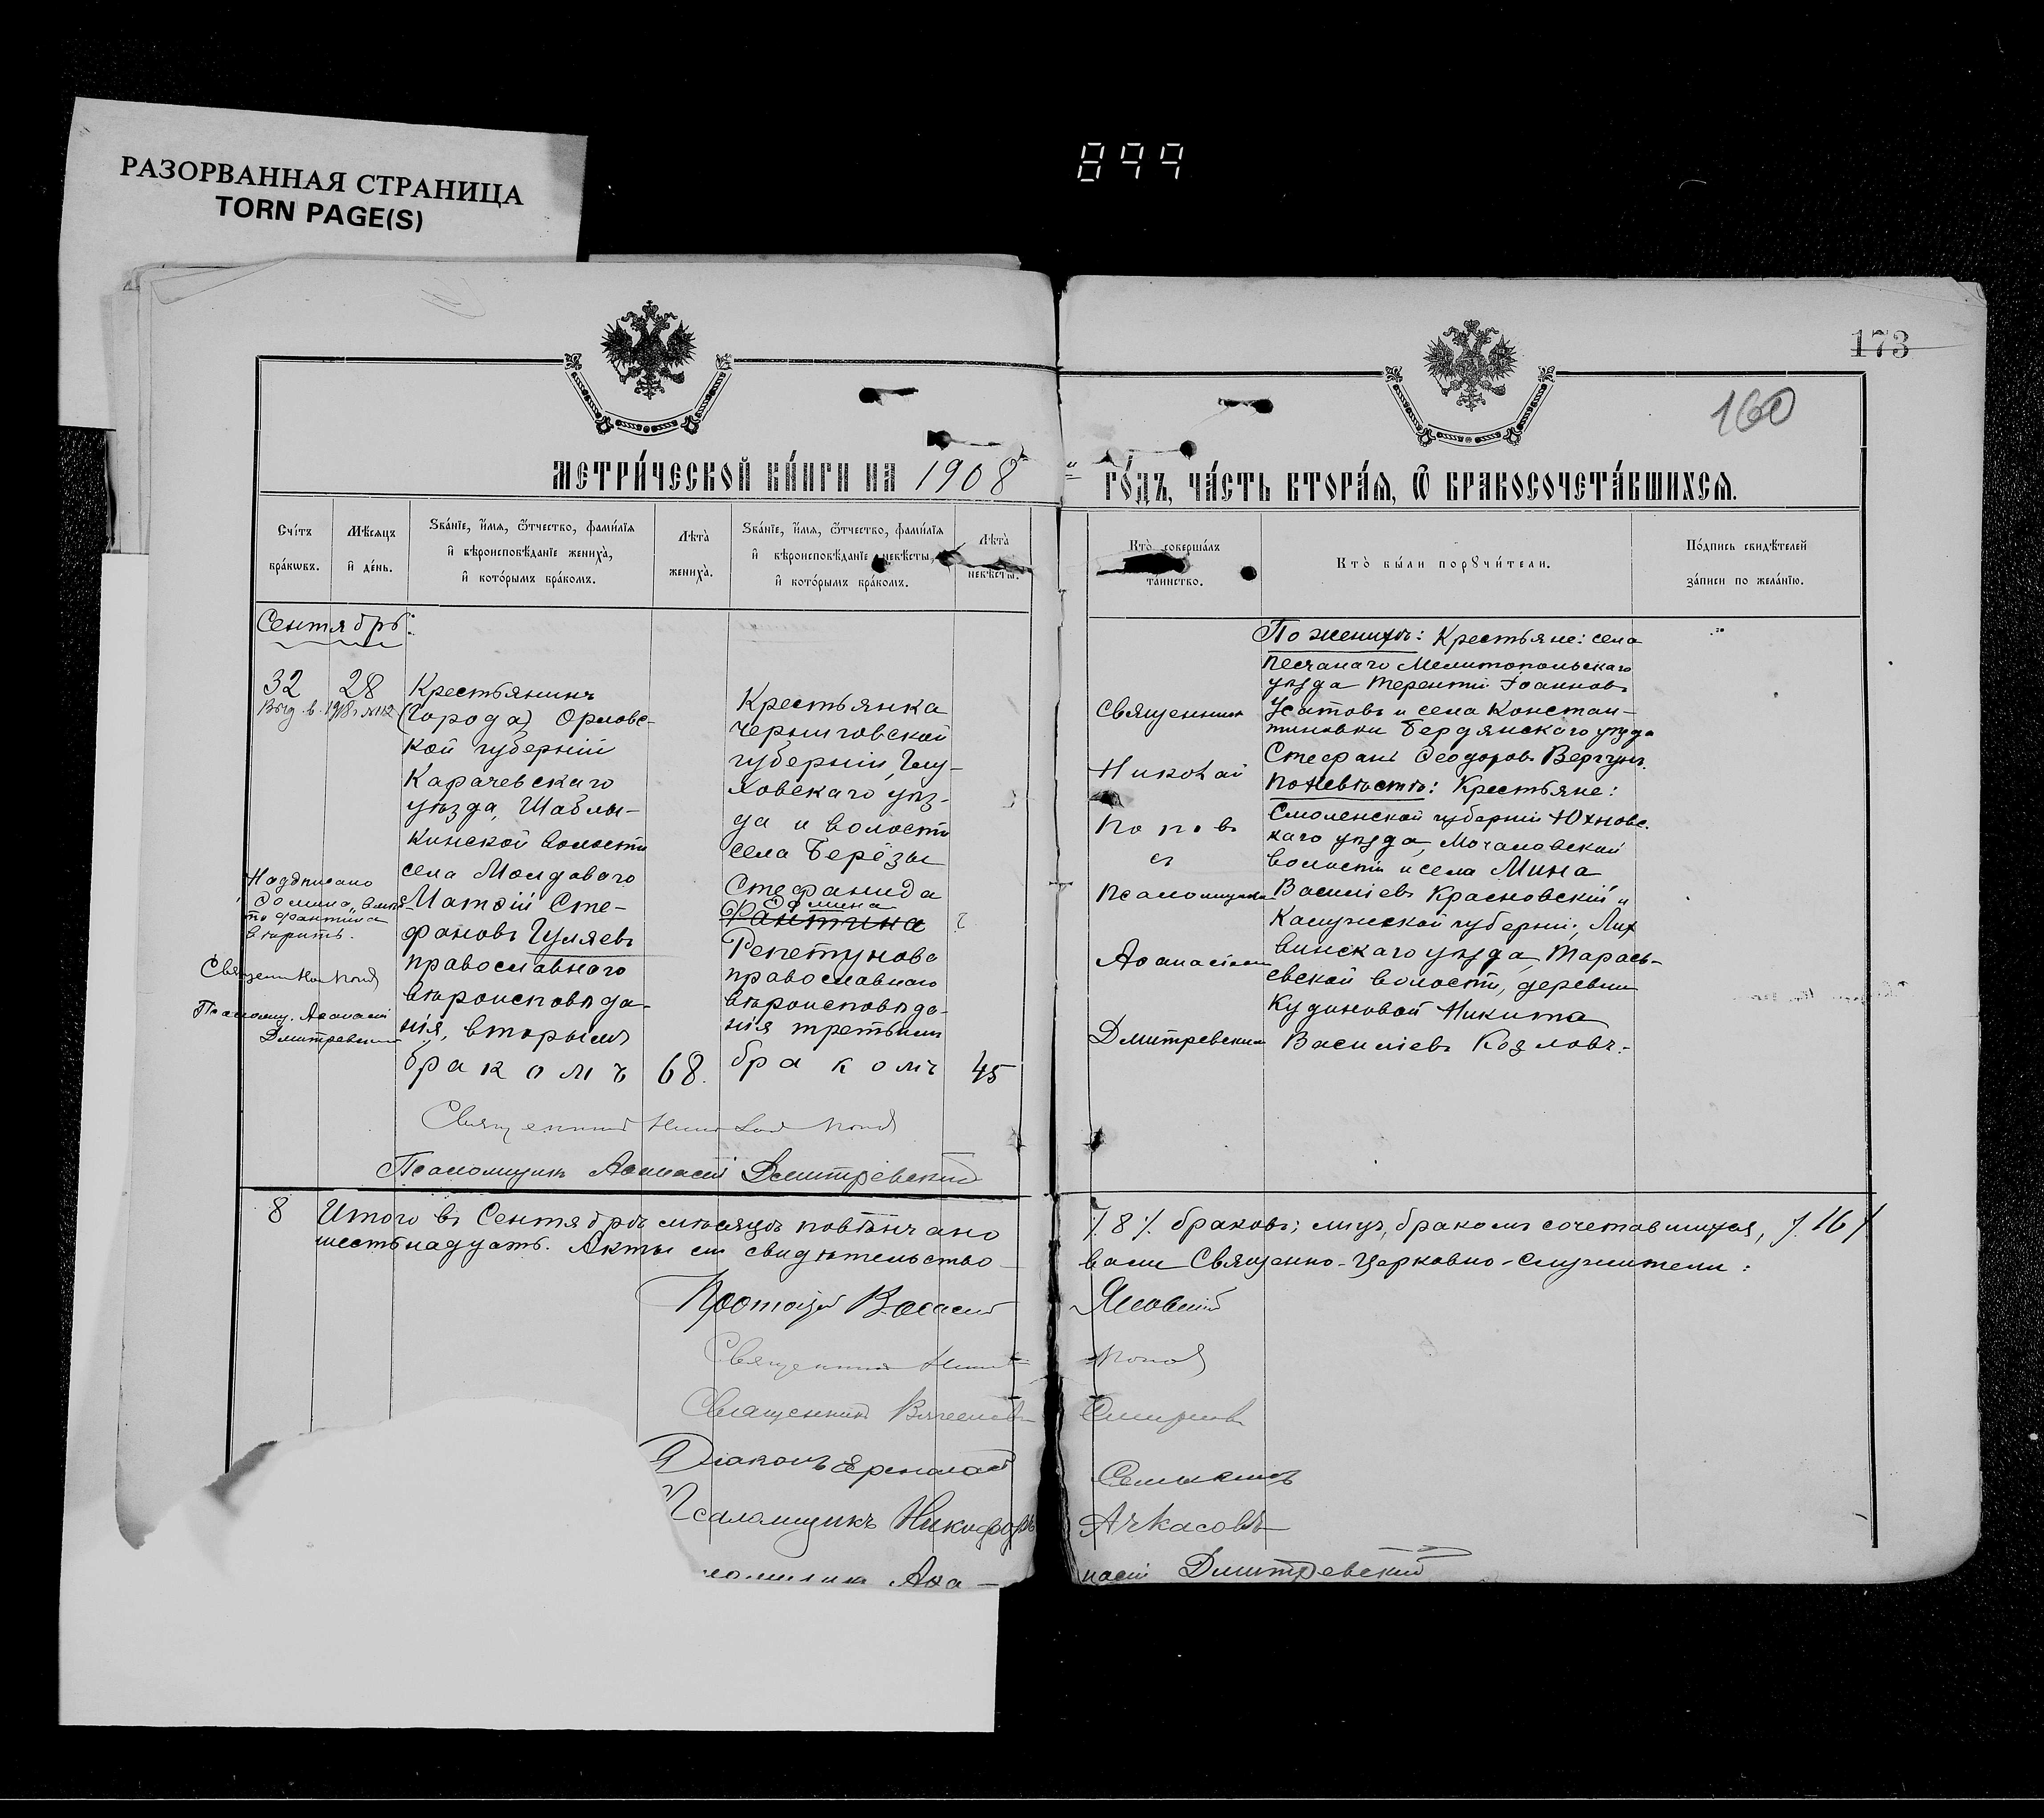 РАЗОРВАННАЯ СТРАНИЦА
TORN PAGE(S)
899
173
160
МЕТРИ́ЧЕСКОЙ КНИ́ГИ НА 1908
ГО́ДЪ, ЧА́СТЬ ВТОРА́Я, Ѡ БРАКОСОЧЕТА́ВШИХСЯ.
Сче́тъ
бра́кѡвъ.
Мѣ́сяцъ
и҆ де́нь.
Ѕва́нїе, и҆́мя, ѻ҆́тчество, фами́лїя
и҆ вѣроисповѣ́данїе жениха̀,
и҆ кото́рымъ бра́комъ.
Лѣ́та
жениха̀.
Ѕва́нїе, и҆́мя, ѻ҆́тчество, фами́лїя
и҆ вѣроисповѣ́данїе невѣ́сты,
и҆ кото́рымъ бра́комъ.
Лѣ́та
невѣ́сты.
Кто̀ соверша́лъ
та́инство.
Кто̀ бы́ли порꙋчи́тели.
По́дпись свидѣ́телей
за́писи по жела́нїю.
Сентябрь:
32
28
Крестьянинъ
(города) Орловс-
кой губерніи
Карачевскаго
уѣзда, Шаблы-
кинской волости
села Молдоваго
Матѳій Сте-
фановъ Гуляевъ
православнаго
вѣроисповѣда-
нія, вторымъ
бракомъ
68.
Крестьянка
Черниговской
губерніи, Глу-
ховскаго уѣз-
да и волости
села Берёзы
Стефанида
Фантина
Репетунова
православнаго
вѣроисповѣда-
нія третьимъ
бракомъ
45
Надписано
вѣрить.
Псаломщ. Аѳанасій
Дмитревскій
Священникъ
Николай
Поповъ
съ
Псаломщикомъ
Аѳанасіемъ
Дмитревскимъ
По женихѣ: Крестьяне: села
Песчанаго Мелитопольскаго
уѣзда Терентій Іоанновъ
Усатовъ и села Констан-
тиновки Бердянскаго уѣзда
Стефанъ Ѳеодоровъ Вергунъ.
По невѣстѣ: Крестьяне:
Смоленской губерніи Юхновс-
каго уѣзда,
волости и села Мина
Василіевъ Красновскій и
Калужской губерніи, Лих
винскаго уѣзда, Тарасъ-
евской волости, деревни
Кудиновой Никита
Василіевъ Козловъ.
Священникъ Николай Поповъ
Псаломщикъ Аѳанасій Дмитревскій
8 Итого въ Сентябрѣ мѣсяцѣ повѣнчано
/.8./. браковъ; лицъ, бракомъ сочетавшихся, /.16/.
шестьнадцать. Акты сіи свидѣтельство-
вали Священно-церковно-служители:
Протоіерей Василій
Священникъ Николай Поповъ
Священникъ Вячеславъ Смирновъ
Діаконъ
Псаломщикъ Никифоръ Ачкасовъ
Аѳа-
насій Дмитревскій